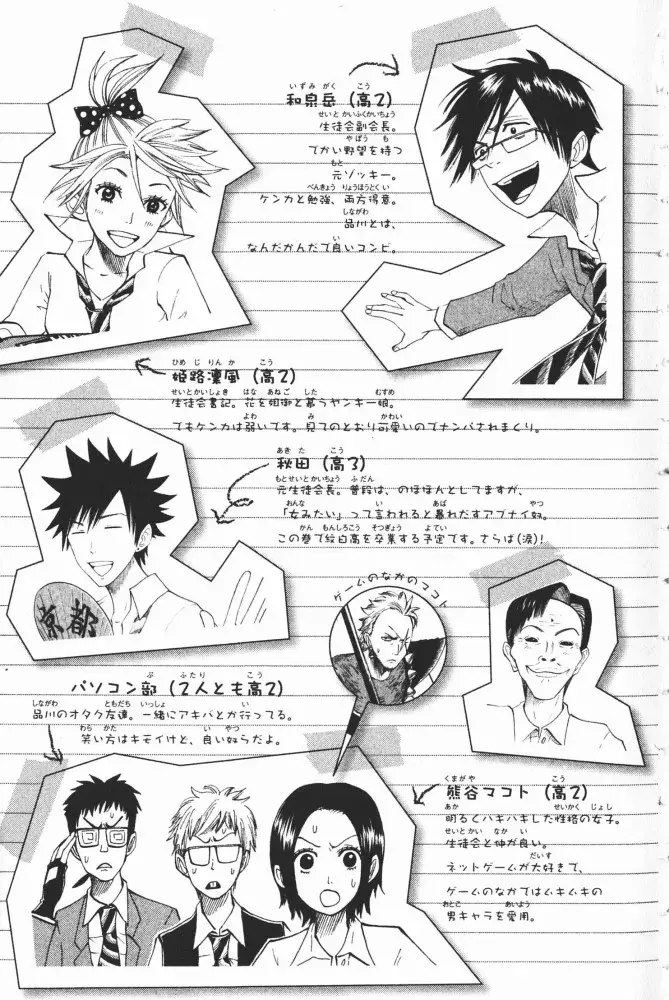 和泉岳（高2）
生徒会副会長。
でかい野望を持つ
元ゾッキー。
ケンカと勉強、両方得意。
品川とは、
なんだかんだで良いコンビ。
姫路凛風（高2）
生徒会書記。花を姐御と慕うヤンキー娘。
でもケンカは弱いです。見てのとおり可愛いのでナンパされまくり。
秋田（高3）
元生徒会長。普段は、のほほんとしてますが、
「女みたい」って言われると暴れだすアブナイ奴。
この巻で紋白高を卒業する予定です。さらば(涙)!
京都
ゲームのなかのマコト
パソコン部（2人とも高2）
品川のオタク友達。一緒にアキバとか行ってる。
笑い方はキモイけど、良い奴らだよ。
熊谷マコト（高2）
明るくハキハキした性格の女子。
生徒会と仲が良い。
ネットゲームが大好きで、
ゲームのなかではムキムキの
男キャラを愛用。